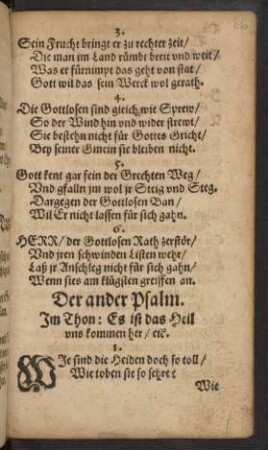 3.
Sein Frucht bringt er zu rechter zeit/
Die man im Land rümbt breit vnd weit/
Was er fürnimpt das geht von stat/
Gott wil das sein Werck wol gerath.
4.
Die Gottlosen sind gleich wie Sprew/
So der Wind hin vnd wider strewt/
Sie bestehn nicht für Gottes Gricht/
Bey seiner Gmein sie bleiben nicht.
5.
Gott kent gar fein der Grechten Weg/
Vnd gfalln jm wol jr Steig vnd Steg.
Dargegen der Gottlosen Ban/
Wil Er nicht lassen für sich gahn.
6.
HERR/ der Gottlosen Rath zerstör/
Vnd jren schwinden Listen wehr/
Laß jr Anschleg nicht für sich gahn/
Wenn sies am klügsten greiffen an.
Der ander Psalm.
Im Thon: Es ist das Heil
vns kommen her/ etc.
1.
WIe sind die Heiden doch so toll/
Wie toben sie so sehre?
Wie